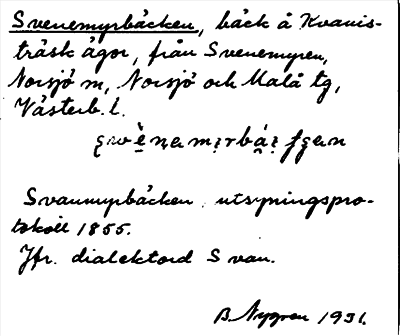 Svenemyrbäcken, bäck å Kvavis-
träsk ägor, från Svenemyren,
Norsjö m, Norsjö och Malå tg,
Västerb. l.
Svanmyrbäcken utsyningspro-
tokoll 1855.
Jfr. dialektord Svan.
B. Nygren 1931.